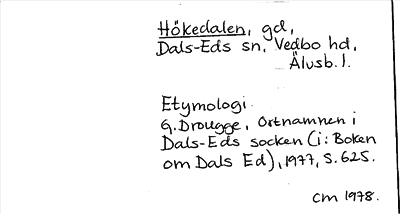 Hökedalen, gd,
Dals-Eds sn, Vedbo hd,
Älvsb. l.
Etymologi.
G. Drougge, Ortnamnen i
Dals-Eds socken (i: Boken
om Dals Ed), 1977, S. 625.
CM 1978.